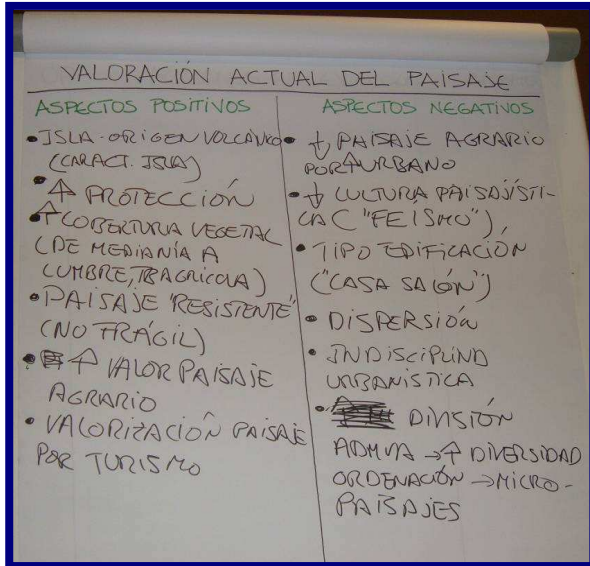 VALORACIÓN ACTUAL DEL PAISAJE
ASPECTOS POSITIVOS
• ISLA-ORIGEN VOLCÁNICO
(CARACT. ISLA)
• ↑ PROTECCIÓN
• ↑ COBERTURA VEGETAL
(DE MEDIANÍA A
CUMBRE, TB AGRÍCOLA)
• PAISAJE "RESISTENTE"
(NO FRÁGIL)
• ↑ VALOR PAISAJE
AGRARIO
• VALORIZACIÓN PAISAJE
POR TURISMO
ASPECTOS NEGATIVOS
• ↓ PAISAJE AGRARIO
POR ↑ URBANO
• ↓ CULTURA PAISAJÍSTI-
CA ("FEÍSMO")
• TIPO EDIFICACIÓN
("CASA SALÓN")
• DISPERSIÓN
• INDISCIPLINA
URBANÍSTICA
• DIVISIÓN
ADMVA → ↑ DIVERSIDAD
ORDENACIÓN → MICRO-
PAISAJES